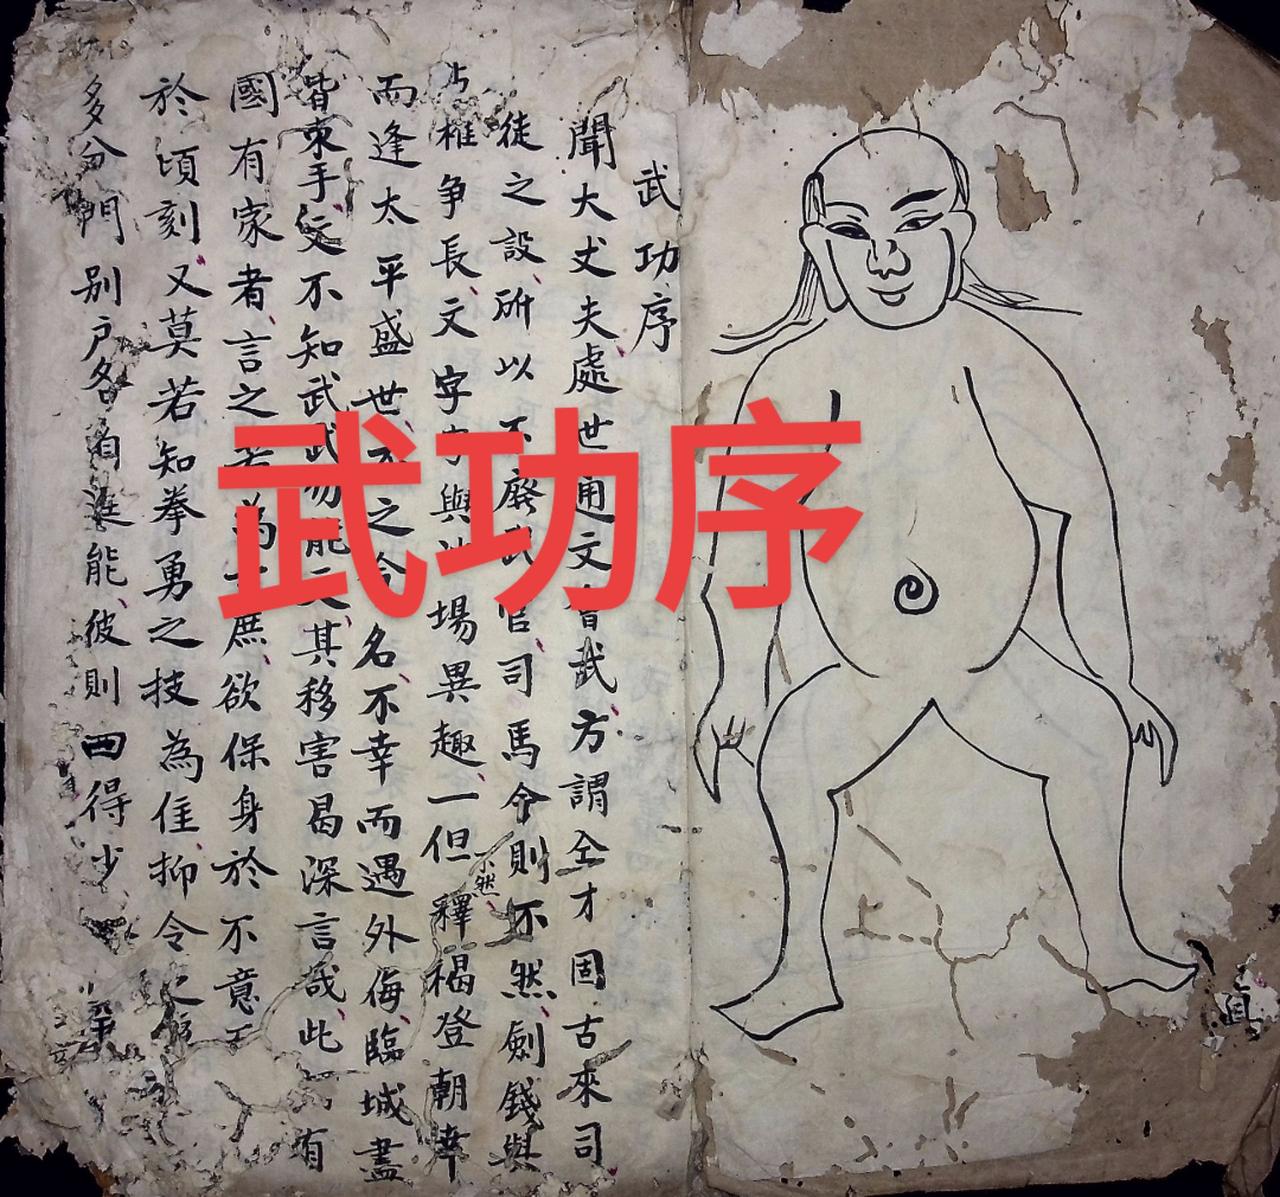 武功序
武功序
聞大丈夫處世通文習武方謂全才固古來司
徒之設所以不廢武官司馬令則不然劍錢與
椎争長文字與沙場異趣一但釋褐登朝幸
不然
而逢太平盛世之今名不幸而遇外侮臨城盡
皆束手文不知武武易能文其移害曷深言哉此有
國有家者言之若為庶欲保身於不意
於頃刻又莫若知拳勇之技為佳抑令之
多分門別户各自逞能彼則四得少
上
直